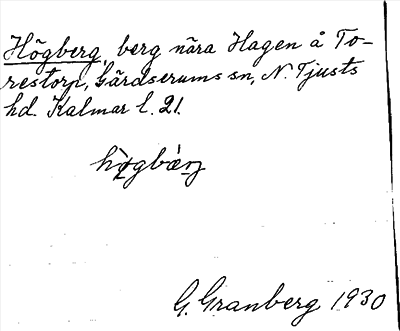 Högberg, berg nära Hagen å To-
restorp, Gärdserums sn, N. Tjusts
hd. Kalmar l. 21.
G. Granberg 1930